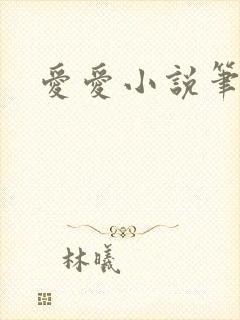 愛愛小説筆
林曦